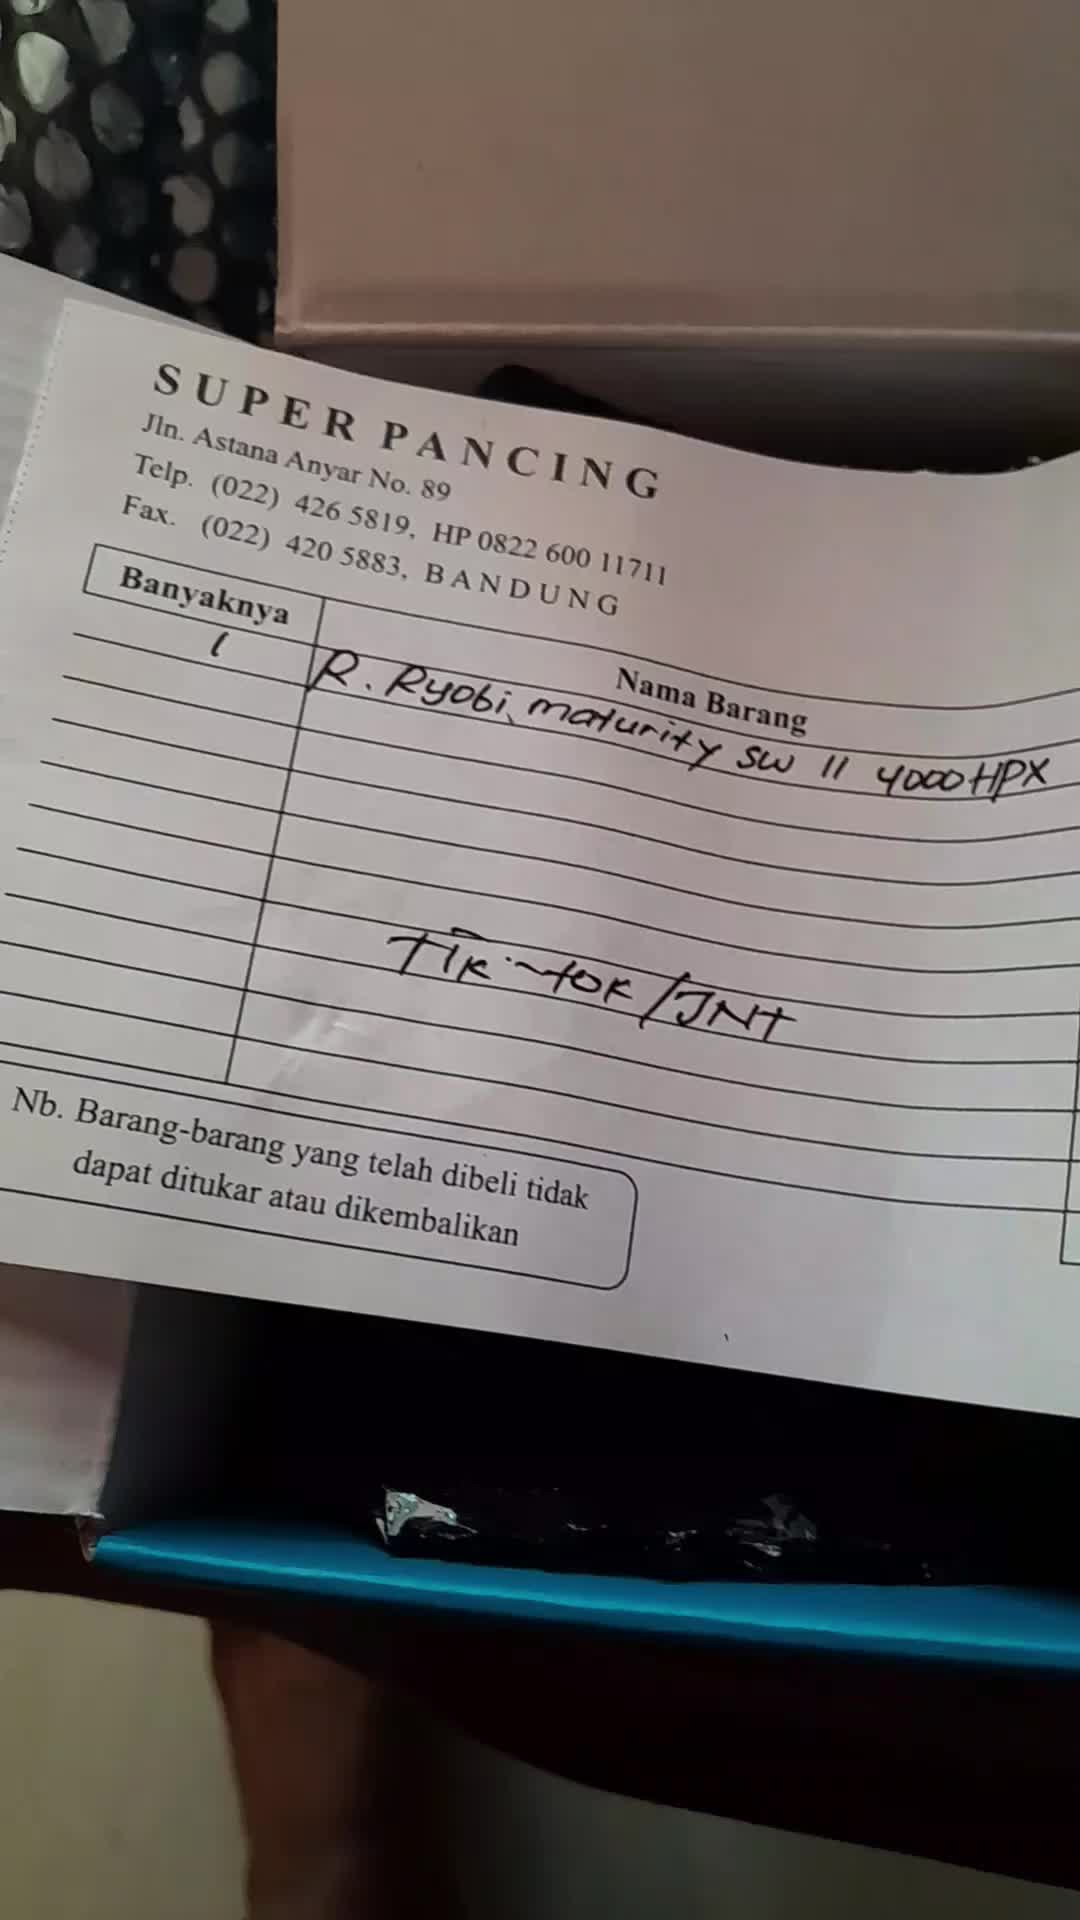 SUPER PANCING
Jln. Astana Anyar No. 89
Telp. (022) 426 5819, HP 0822 600 11711
Fax. (022) 420 5883, BANDUNG
Banyaknya
Nama Barang
1 R. Ryobi maturity SW II 4000 HPX
Tik-tok/JNT
Nb. Barang-barang yang telah dibeli tidak
dapat ditukar atau dikembalikan